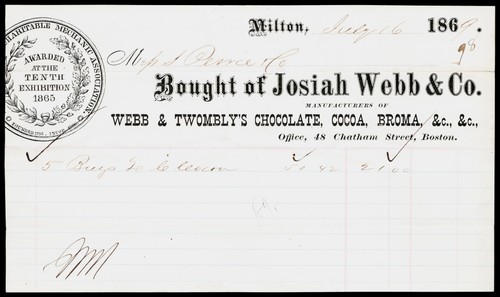 CHARITABLE MECHANIC ASSOCIATION.
AWARDED
AT THE
TENTH
EXHIBITION
1865
Milton, July 16 1869.
98
Mess S Pierce & Co
Bought of Josiah Webb & Co.
MANUFACTURERS OF
WEBB & TWOMBLY'S CHOCOLATE, COCOA, BROMA, &c., &c.,
Office, 48 Chatham Street, Boston.
5 42 21 00